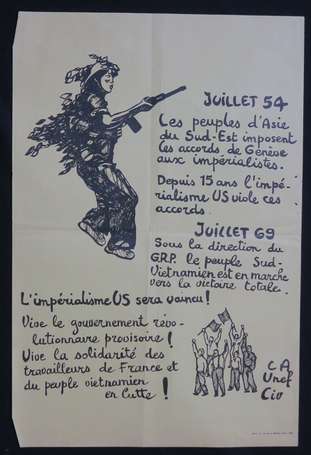 JUILLET 54
Les peuples d'Asie
du Sud-Est imposent
les accords de Genève
aux impérialistes.
Depuis 15 ans l'impé-
rialisme US viole ces
accords.
JUILLET 69
Sous la direction du
G.R.P. le peuple Sud-
Vietnamien est en marche
vers la victoire totale.
L'impérialisme US sera vaincu!
Vive le gouvernement révo-
lutionnaire provisoire!
Vive la solidarité des
travailleurs de France et
du peuple vietnamien
en lutte!
CA
Unef
Civ